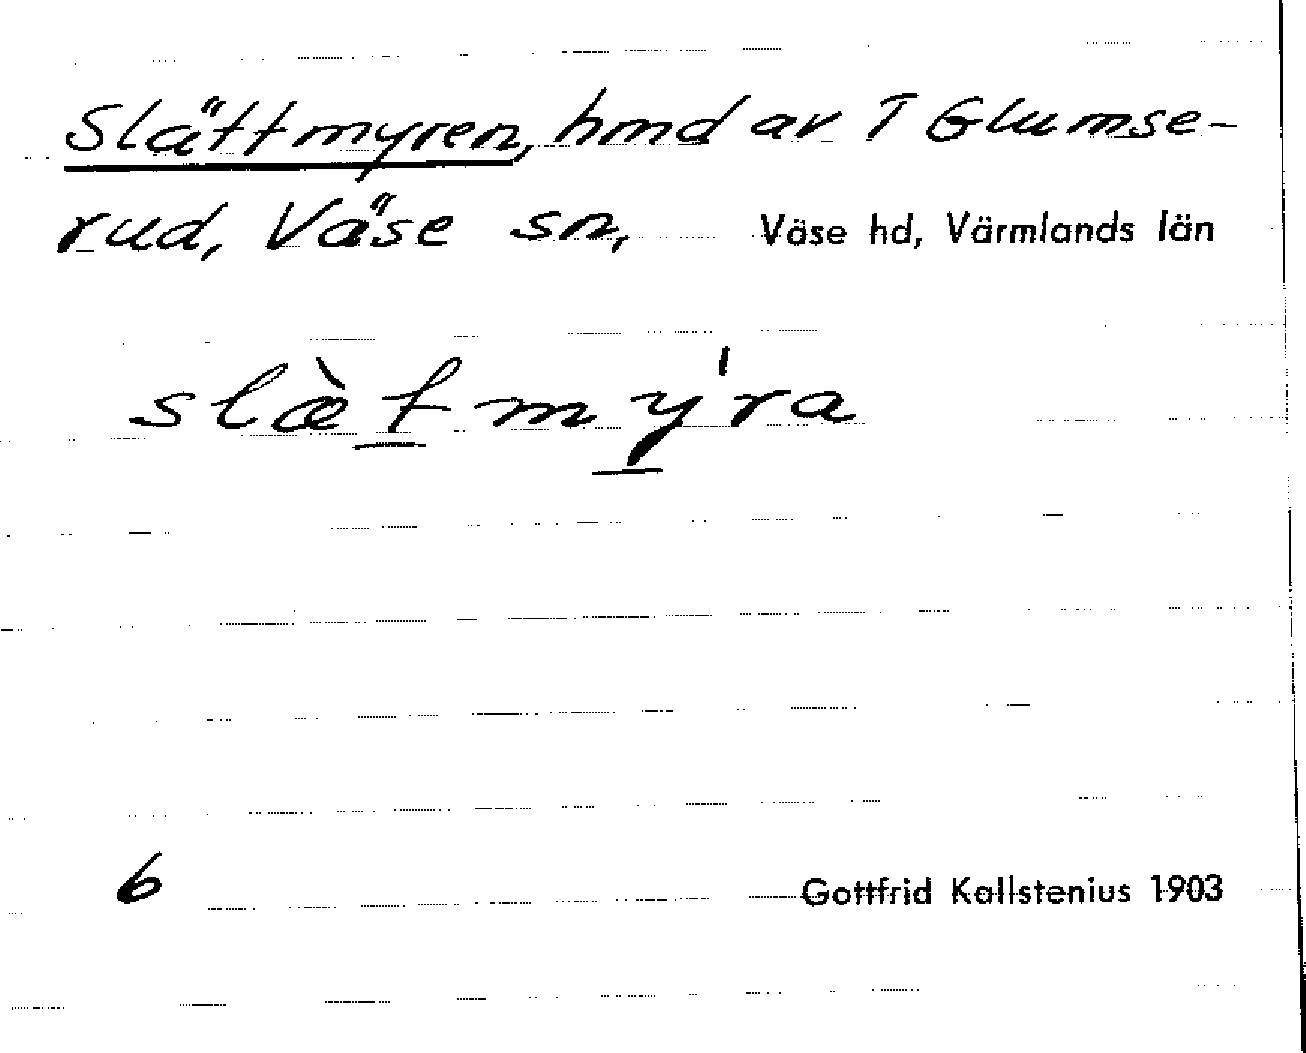 Slättmyren, hmd av T Glumse-
rud, Väse sn, Väse hd, Värmlands län
slæ̀tmy̍ra
6
Gottfrid Kallstenius 1903